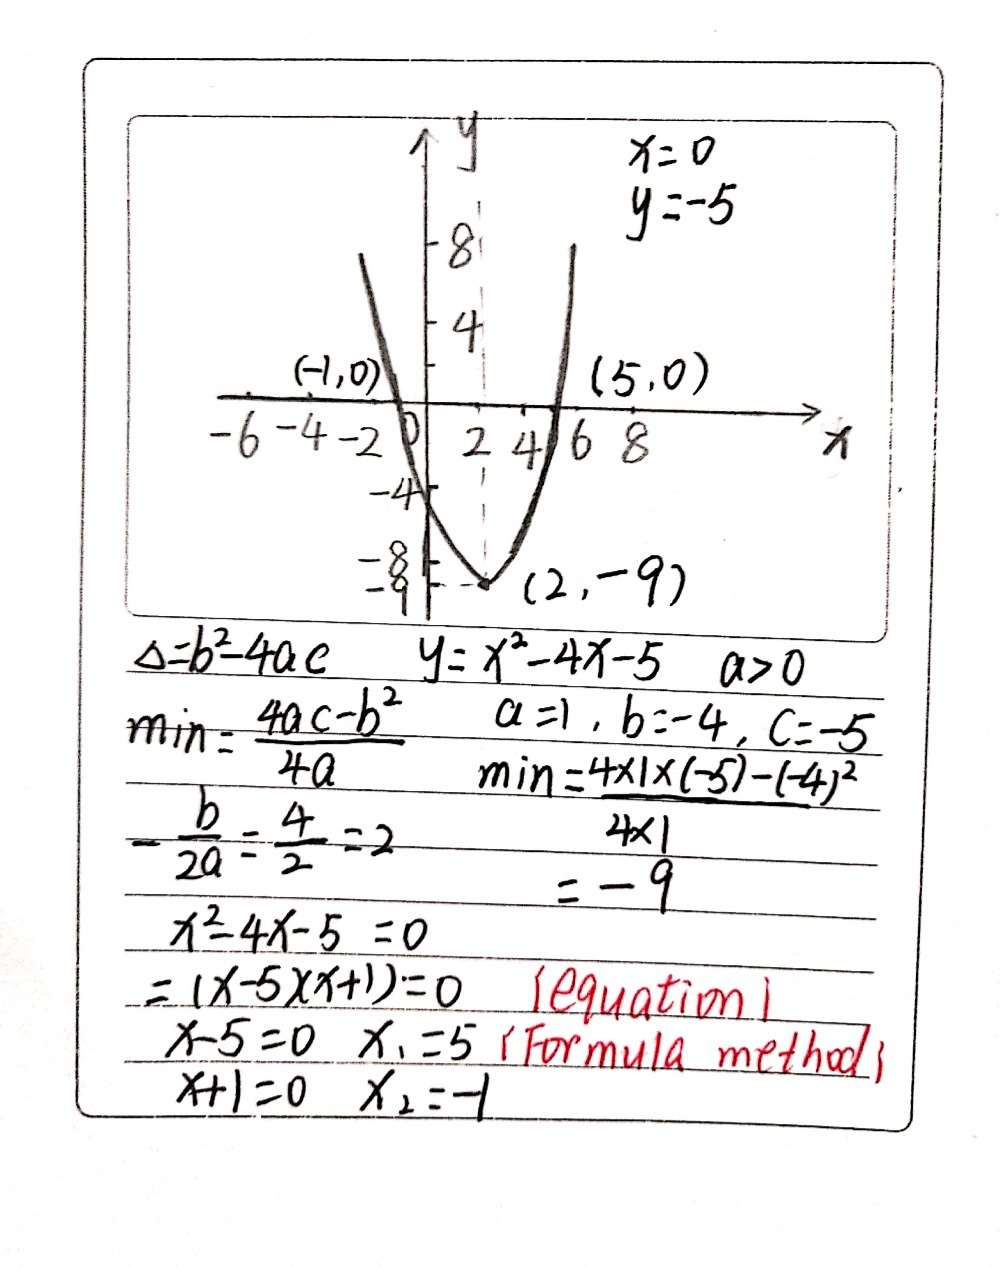 y
x=0
y=-5
8
4
(-1,0) (5,0)
-6 -4 -2 0 2 4 6 8 x
-4
-8
-9 (2,-9)
Δ=b²-4ac y=x²-4x-5 a>0
min=(4ac-b²)/4a a=1, b=-4, C=-5
min=(4×1×(-5)-(-4)²)/(4×1)
-b/2a=4/2=2
=-9
x²-4x-5=0
=(x-5)(x+1)=0 (equation)
x-5=0 x₁=5 (Formula method)
x+1=0 x₂=-1